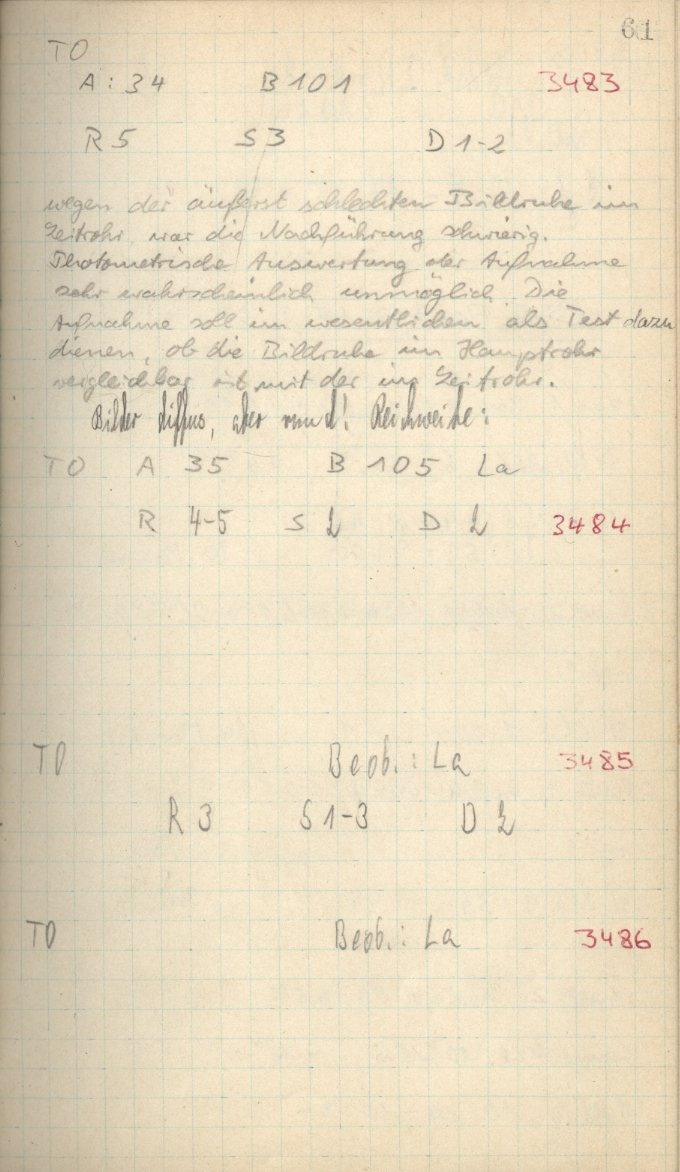 61
TO
A : 34 B 101 3483
R 5 S 3 D 1-2
wegen der äußerst schlechten Bildruhe im
Zeitrohr war die Nachführung schwierig.
Photometrische Auswertung der Aufnahme
sehr wahrscheinlich unmöglich. Die
Aufnahme soll im wesentlichen als Test dazu
dienen, ob die Bildruhe im Hauptrohr
vergleichbar ist mit der im Zeitrohr.
Bilder diffus, aber rund! Reichweite:
TO A 35 B 105 La
R 4-5 S 2 D 2 3484
TO Beob. : La 3485
R 3 S 1-3 D 2
TO Beob. : La 3486